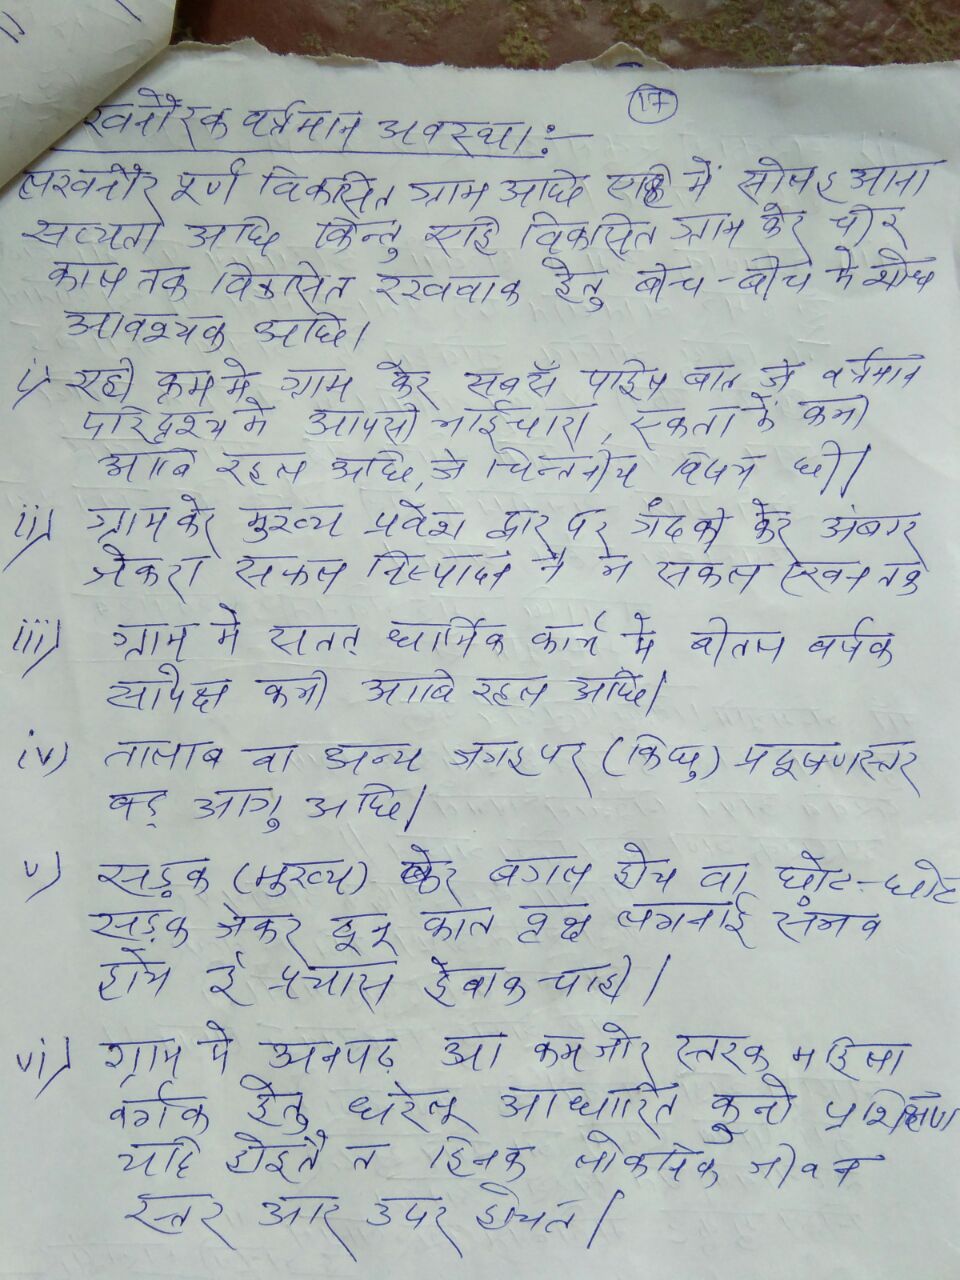 17
खनौरक वर्तमान अवस्था:-
लखनौर पूर्ण विकसित ग्राम अछि एहि में सोलह आना
सत्यता अछि किन्तु एहि विकसित ग्राम केर चीर
काल तक विकसित रखवाक हेतु बीच-बीच मे शोध
आवश्यक अछि।
i) एही क्रम मे ग्राम केर सबसँ पहिल बात जे वर्तमान
परिदृश्य मे आपसी भाईचारा, एकता में कमी
आबि रहल अछि, जे चिन्तनीय विषय छी।
ii) ग्राम केर मुख्य प्रवेश द्वार पर गंदकी केर अंबार
जेकरा सफल निष्पादन नै भ सकल एखन तक
iii) ग्राम मे सतत् धार्मिक कार्य मे बीतल वर्षक
सापेक्ष कमी आबि रहल अछि।
iv) तालाब वा अन्य जगह पर (किछु) प्रदूषणस्तर
बड़ आगु अछि।
v) सड़क (मुख्य) केर बगल होय वा छोट-छोट
सड़क जेकर दूनू कात वृक्ष लगनाई संभव
होय ई प्रयास हेवाक चाही।
vi) ग्राम मे अनपढ़ आ कमजोर स्तरक महिला
वर्गक हेतु घरेलू आधारित कुनो प्रशिक्षण
यदि होइतै त हिनक जीवन
स्तर आर उपर होयत।